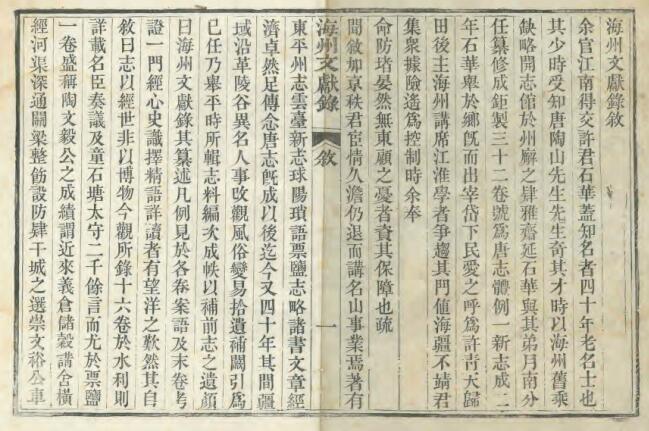 海州文獻錄敘
余官江南得交許君石華蓋知名者四十年老名士也
其少時受知唐陶山先生先生奇其才時以海州舊乘
缺略開志館於州廨之肆雅齋延石華與其弟月南分
任纂修成鉅製三十二卷號爲唐志體例一新志成二
年石華舉於鄉旣而出宰岱下民愛之呼爲許靑天歸
田後主海州講席江淮學者爭趨其門値海疆不靖君
集衆據險遙爲控制時余奉
命防堵晏然無東顧之憂者資其保障也疏
聞敘如京秩君宦情久澹仍退而講名山事業焉著有
海州文獻錄 敘 一
東平州志雲臺新志球陽瑣語票鹽志略諸書文章經
濟卓然足傳念唐志旣成以後迄今又四十年其間疆
域沿革陵谷異名人事攺觀風俗變易拾遺補闕引爲
已任乃舉平時所輯志料編次成帙以補前志之遺顏
曰海州文獻錄其纂述凡例見於各卷案語及末卷考
證一門經心史識擇精語詳讀者有望洋之歎然其自
敘曰志以經世非以博物今觀所錄十六卷於水利則
詳載名臣奏議及童石塘太守二千餘言而尤於票鹽
一卷盛稱陶文毅公之成績謂近來義倉儲穀講舍橫
經河渠深通關梁整飭設防肆干城之選崇文裕公車